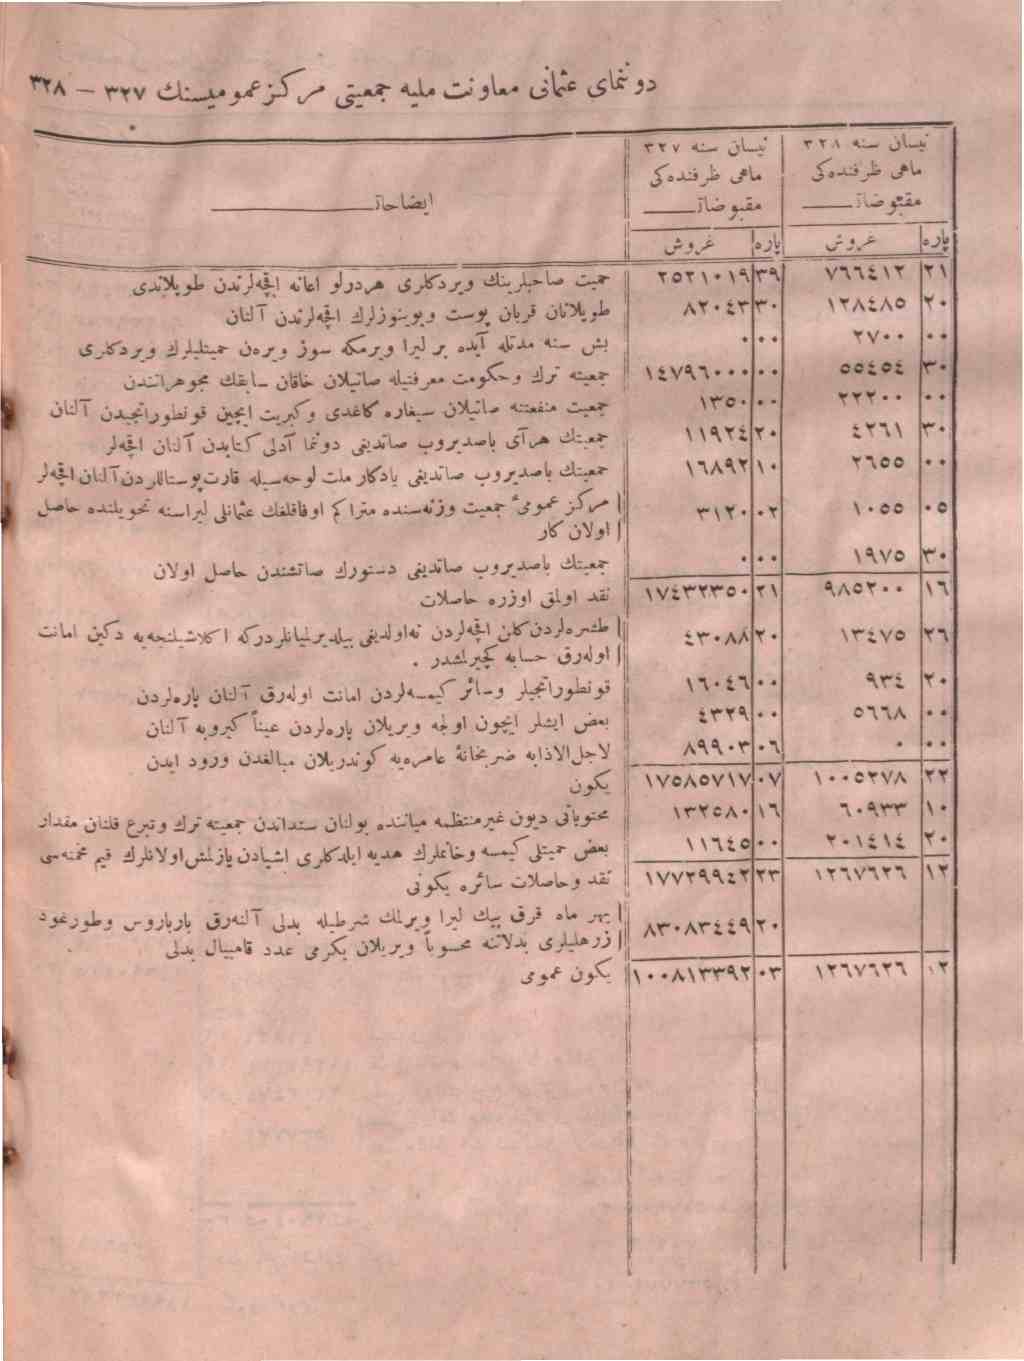 دوننمای عثمانی معاونت ملیه جمعیتی مرکز عمومیسنك ٣٢٧ — ٣٢٨
نیسان سنه ٣٢٨ ماهی ظرفنده‌کی مقبوضات
نیسان سنه ٣٢٧ ماهی ظرفنده‌کی مقبوضات
ایضاحات
پاره غروش پاره غروش
٢١ ٧٦٦٤١٢ ٣٩ ٢٥٢١٠١٩ حمیت صاحبلرینك ویردکلری هردرلو اعانه اقچه‌لرندن طوپلاندی
٢٠ ١٢٨٤٨٥ ٣٠ ٨٢٠٤٣ طوپلانان قربان پوست وبوینوزلرك اقچه‌لرندن آلنان
٠٠ ٢٧٠٠ ٠٠ ٠ بش سنه مدتله آیده بر لیرا ویرمکه سوز ویره‌ن حمیتلیلرك ویردکلری
٣٠ ٥٥٤٥٤ ٠٠ ١٤٧٩٦٠٠٠ جمعیته ترك وحکومت معرفتیله صاتیلان خاقان سابقك مجوهراتندن
٠٠ ٢٢٢٠٠ ٠٠ ١٣٥٠ جمعیت منفعتنه صاتیلان سیغاره کاغدی وکبریت ایچین قونطوراتجیدن آلنان
٣٠ ٤٢٦١ ٢٠ ١١٩٢٤ جمعیتك هرآی باصدیروب صاتدیغی دوننما آدلی کتابدن آلنان اقچه‌لر
٠٠ ٢٦٥٥ ١٠ ١٦٨٩٢ جمعیتك باصدیروب صاتدیغی یادکار ملت لوحه‌سیله قارت‌پوستاللردن آلنان اقچه‌لر
٠٥ ١٠٥٥ ٠٢ ٣١٢٠ مرکز عمومیٔ جمعیت وزنه‌سنده متراکم اوفاقلغك عثمانلی لیراسنه تحویلنده حاصل
اولان کار
٣٠ ١٩٧٥ ٠٠ ٠ جمعیتك باصدیروب صاتدیغی دستورك صاتشندن حاصل اولان
١٦ ٩٨٥٢٠٠ ٢١ ١٧٤٣٢٣٥٠ نقد اولمق اوزره حاصلات
٢٦ ١٣٤٧٥ ٢٠ ٤٣٠٨٨ طشره‌لردن کلن اقچه‌لردن نه‌اولدیغی بیلدیرلمیانلردرکه اکلاشیلنجه‌یه دکین امانت
اوله‌رق حسابه کچیرلمشدر .
٢٠ ٩٣٤ ٠٠ ١٦٠٤٦ قونطوراتجیلر وسائر کیمسه‌لردن امانت اوله‌رق آلنان پاره‌لردن
٠٠ ٥٦٦٨ ٠٠ ٤٣٢٩ بعض ایشلر ایچون اولجه ویریلان پاره‌لردن عیناً کیروبه آلنان
٠٠ ٠ ٠٦ ٨٩٩٠٣ لاجل‌الاذابه ضربخانهٔ عامره‌یه کوندریلان مبالغدن ورود ایدن
٢٢ ١٠٠٥٢٧٨ ٠٧ ١٧٥٨٥٧١٧ یکون
١٠ ٦٠٩٣٣ ١٦ ١٣٢٥٨٠ محتویاتی دیون غیرمنتظمه میاننده بولنان سنداتدن جمعیته ترك وتبرع قلنان مقدار
٢٠ ٢٠١٤١٤ ٠٠ ١١٦٤٥ بعض حمیتلی کیمسه وخانملرك هدیه ایلدکلری اشیادن یازلمش‌اولانلرك قیم مخمنه‌سی
١٢ ١٢٦٧٦٢٦ ٢٣ ١٧٧٢٩٩٤٢ نقد وحاصلات سائره یکونی
٢٠ ٨٣٠٨٣٤٤٩ بهر ماه قرق بیك لیرا ویرلمك شرطیله بدلی آلنه‌رق بارباروس وطورغود
زرهلیلری بدلاتنه محسوباً ویریلان یکرمی عدد قامبیال بدلی
١٢ ١٢٦٧٦٢٦ ٠٣ ١٠٠٨١٣٣٩٢ یکون عمومی